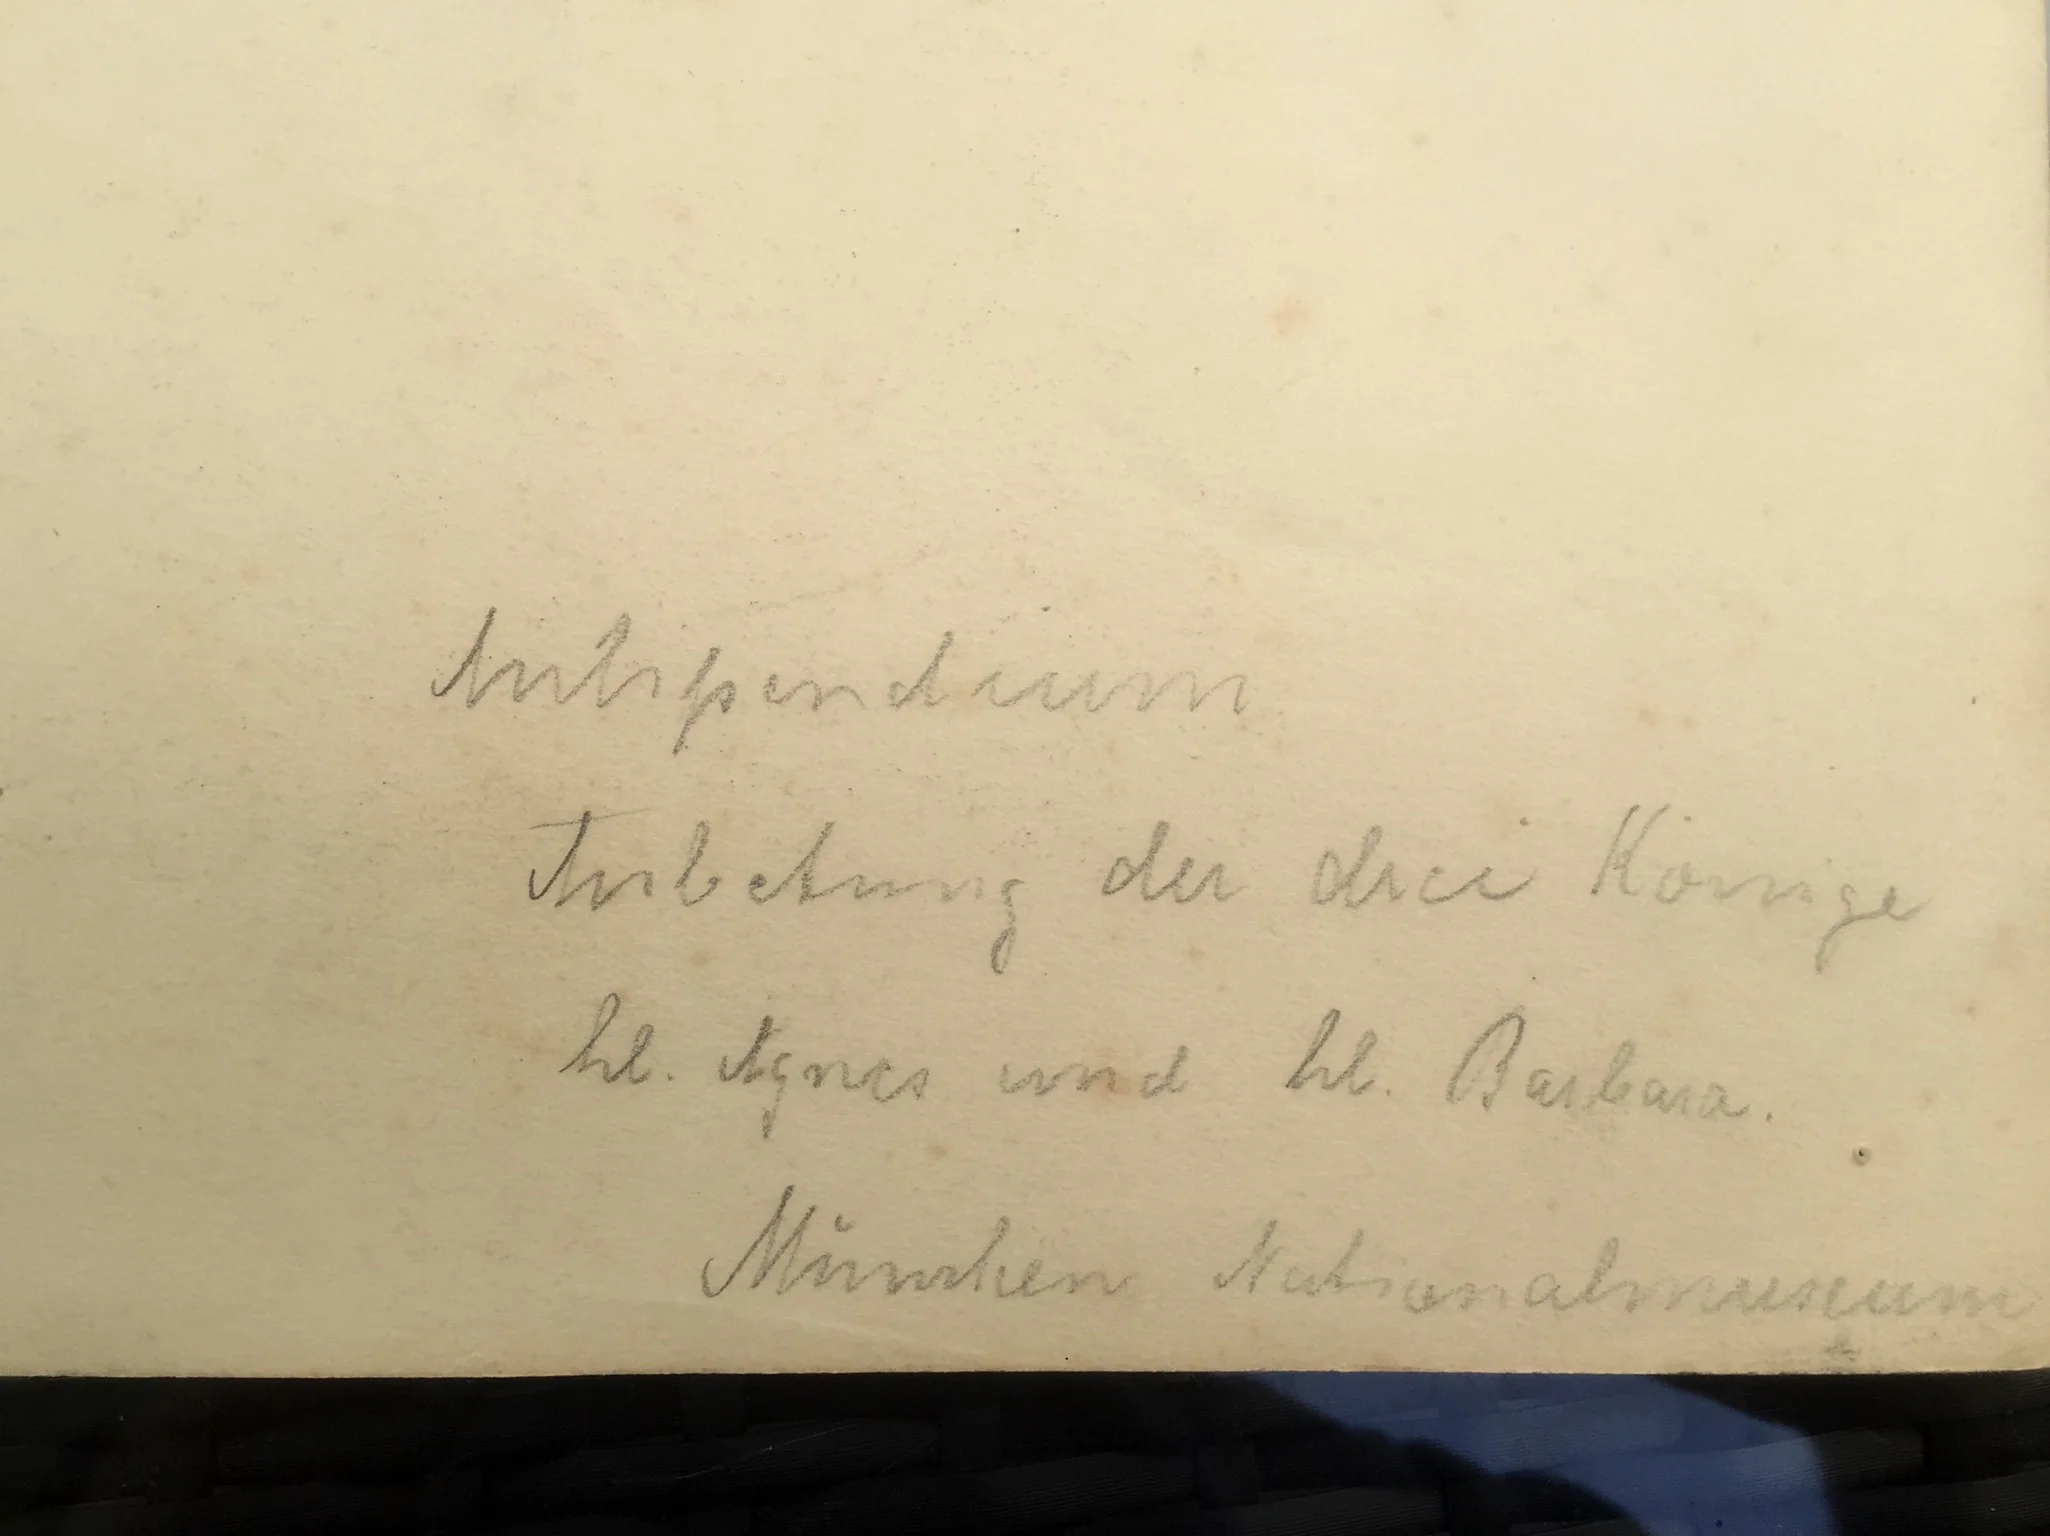 Antipendium
Anbetung der drei Könige
hl. Agnes und hl. Barbara.
München Nationalmuseum